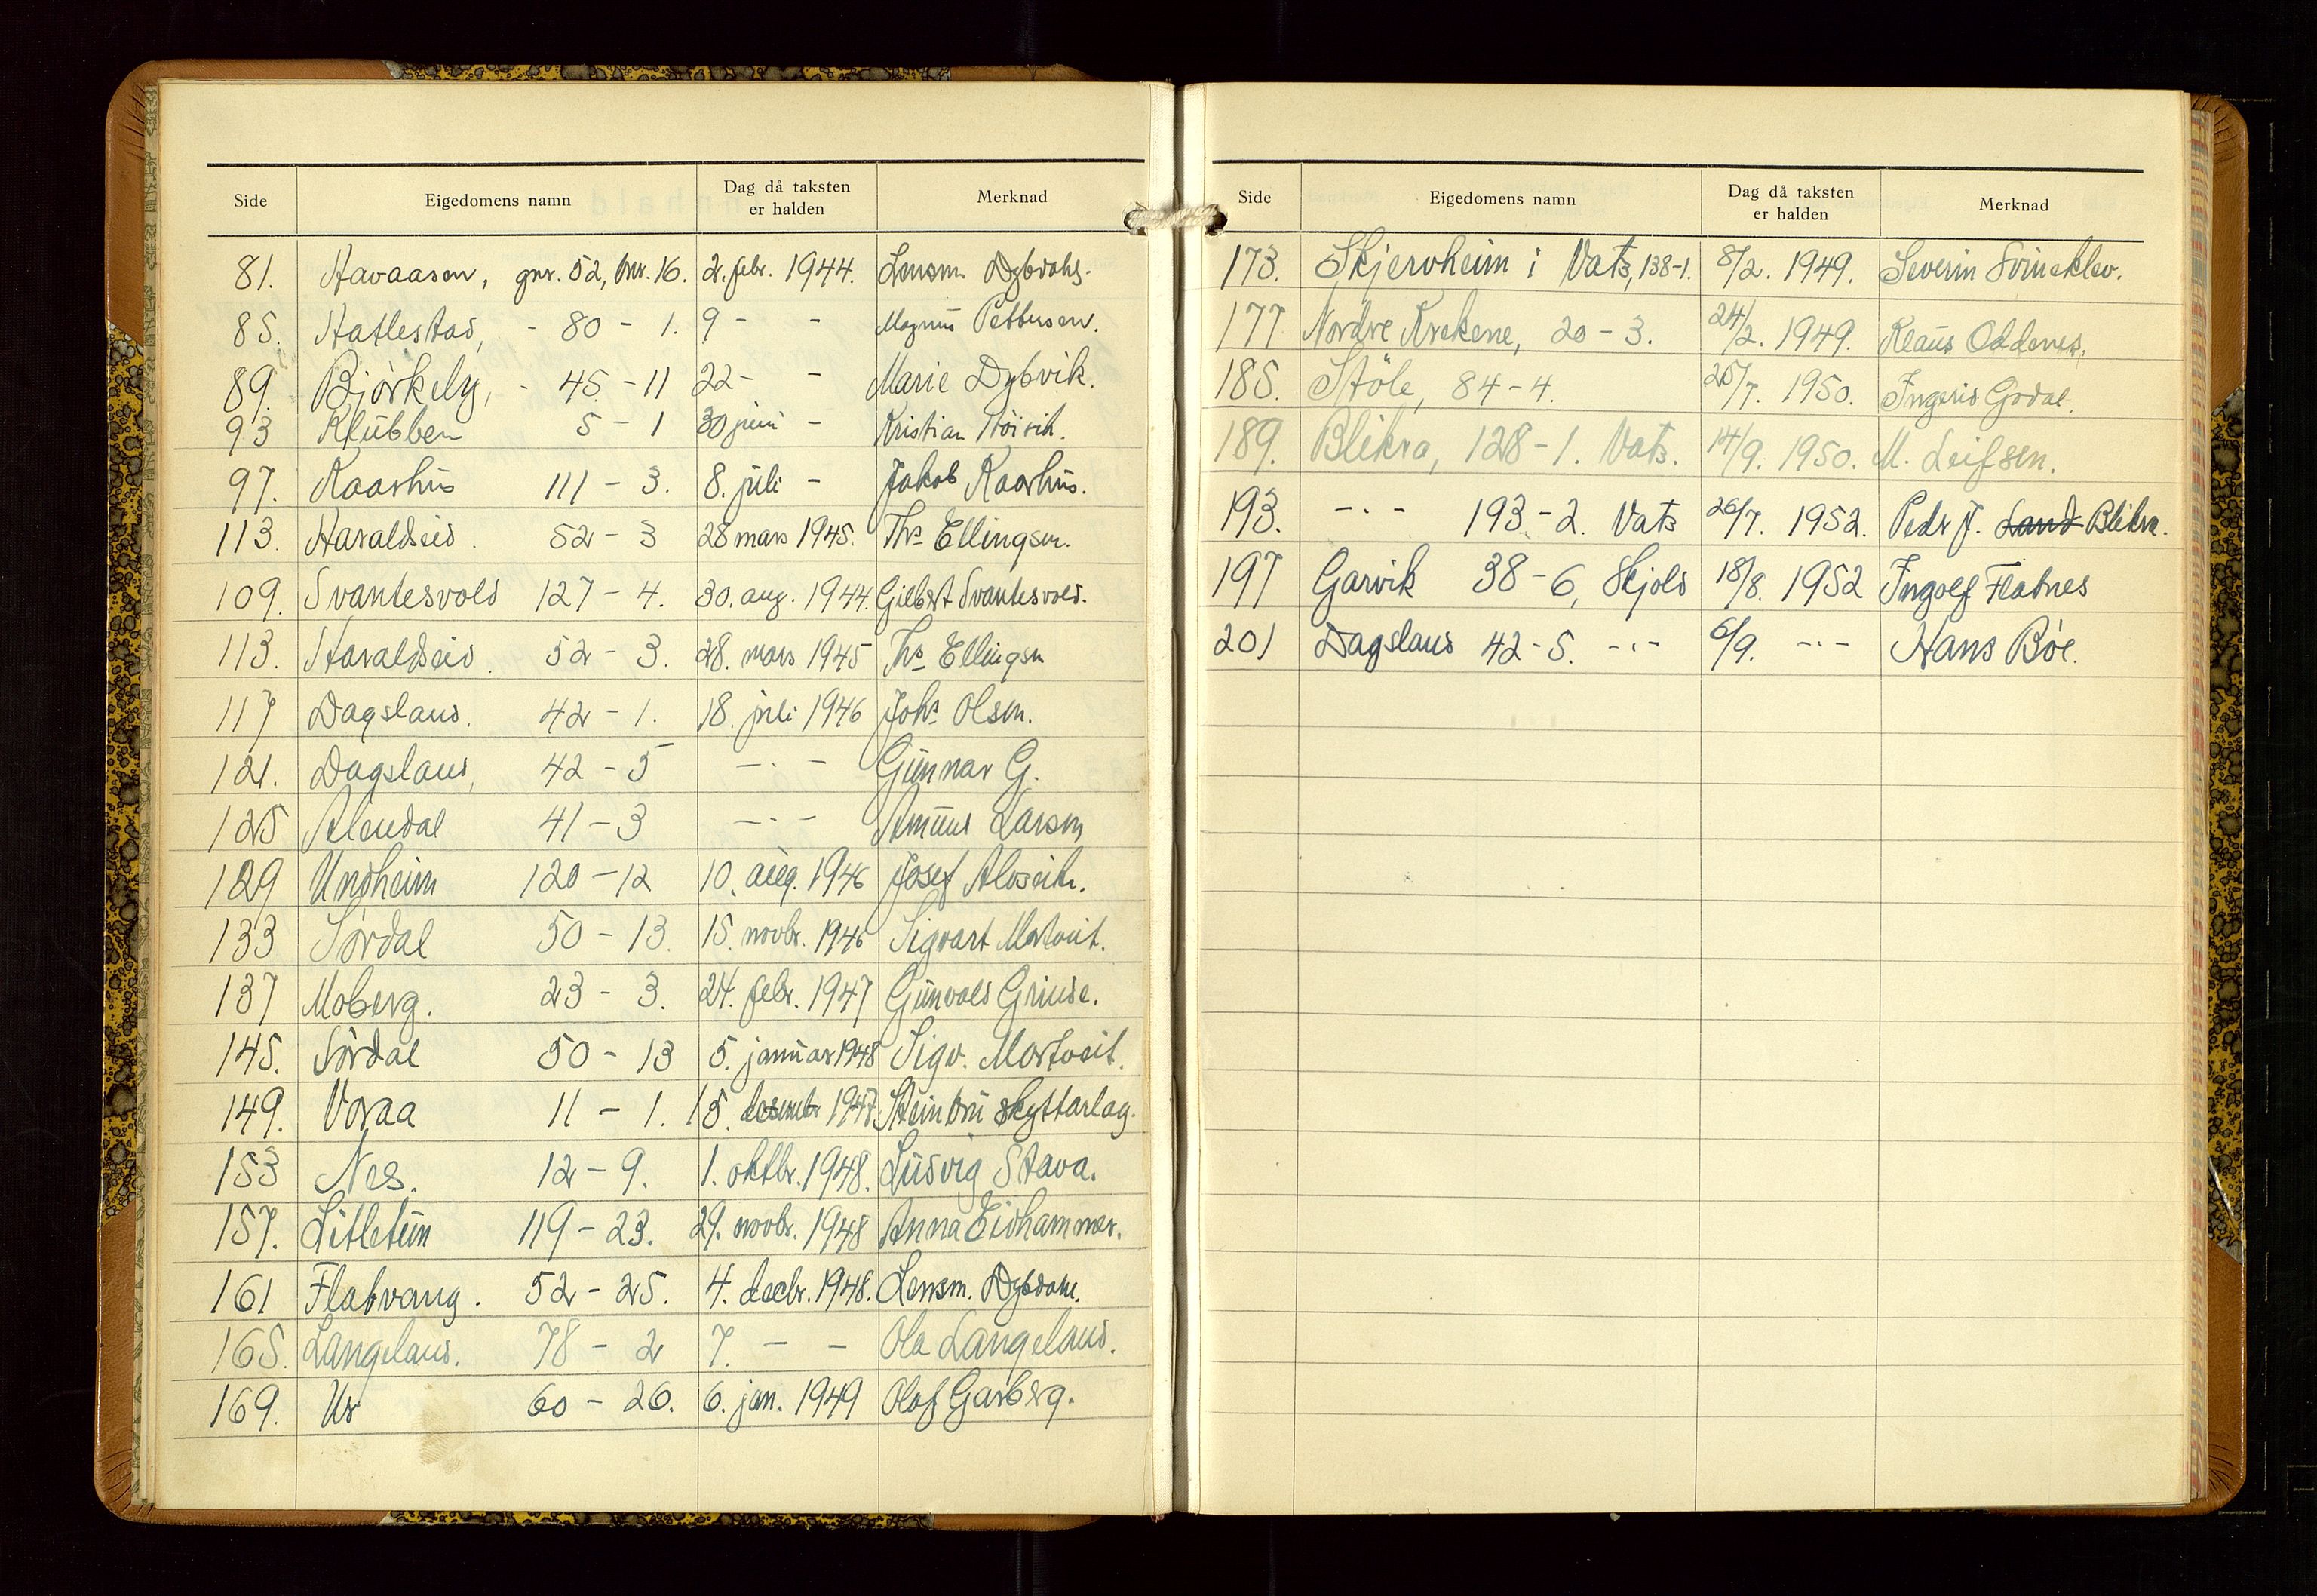 Side Eigedomens namn Dag då taksten er halden Merknad
81. Havaasen, gnr. 52, bnr. 16. 2. febr. 1944. Lensm. Dybdahl.
85. Hatlestad, - 80 - 1. 9 - - Magnus Pettersen.
89. Björkely, - 45 - 11 22 - - Marie Dybvik.
93 Klubben 5 - 1 30 juni - Kristian
97. Kaarhus 111 - 3. 8. juli - Jakob Kaarhus.
113. Haraldseid. 52 - 3 28 mars 1945. Ths Ellingsen.
109. Svantesvold 127 - 4. 30. aug. 1944. Gilbert Svantesvold.
113. Haraldseid. 52 - 3. 28. mars 1945 Ths Ellingsen
117 Dagsland. 42 - 1. 18. juli 1946 Johs Olsen.
121. Dagsland, 42 - 5 - . - Gunnar G.
125 Alendal 41 - 3 - . - Amund Larsen
129 Undheim 120 - 12 10. aug. 1946 Josef Alvseik.
133 Sørdal 50 - 13. 15. novbr. 1946 Sigvart Mortveit.
137 Moberg. 23 - 3. 24. febr. 1947 Gunvald Grinde.
145. Sørdal 50 - 13 5. januar 1948 Sigv. Mortveit.
149. Voraa 11 - 1. 15. desembr 1947. Steinbru Skyttarlag.
153 Nes. 12 - 9. 1. oktbr. 1948. Ludvig Stava.
157. Litletun 119 - 23. 29. novbr. 1948 Anna Eidhammer.
161 Flatvang. 52 - 25. 4. decbr. 1948. Lensm. Dybdahl.
165. Langeland. 78 - 2 7. - - Ola Langeland.
169. Ur 60 - 26. 6. jan. 1949 Olaf Garberg.
Side Eigedomens namn Dag då taksten er halden Merknad
173. Skjerheim i Vats, 138-1. 8/2. 1949. Severin Svineklev.
177 Nordre Krekene, 20 - 3. 24/2. 1949. Klaus Oddenes.
185. Støle, 84 - 4. 25/7. 1950. Ingerid Godal.
189. Blikra, 128 - 1. Vats. 14/9. 1950. M. Leifsen.
193. - . - 193 - 2. Vats 26/7. 1952. Peder J. Land Blikra.
197 Garvik 38 - 6, Skjold 18/8. 1952 Ingolf Flatnes
201 Dagsland 42 - 5. - . - 6/9. - . - Hans Bøe.